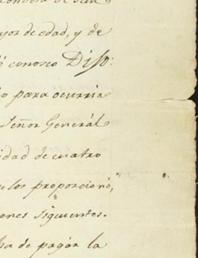 yor de edad, y de
conosco Dijo:
para ocurrir
Señor General
idad de cuatro
los proporcionó,
ones siguientes.
de pagar la